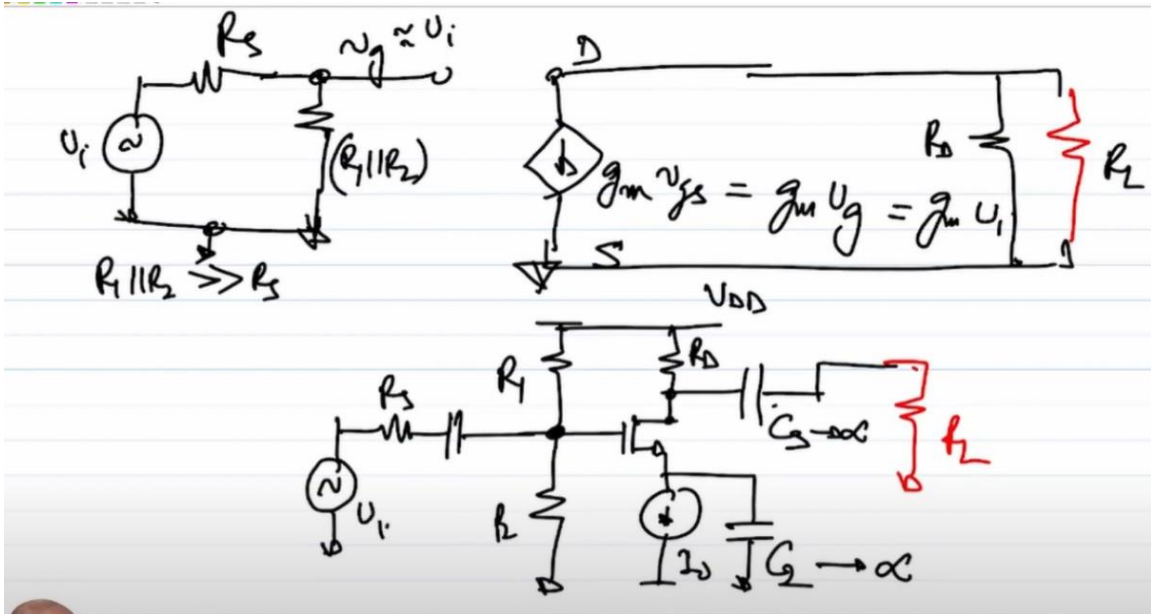 Rs
vg ≈ vi
vi
(R1||R2)
R1||R2 >> Rs
D
gm vgs = gm vg = gm vi
S
RD
RL
VDD
R1
RD
Rs
C3→∞
RL
vi
R2
I0
C2→∞